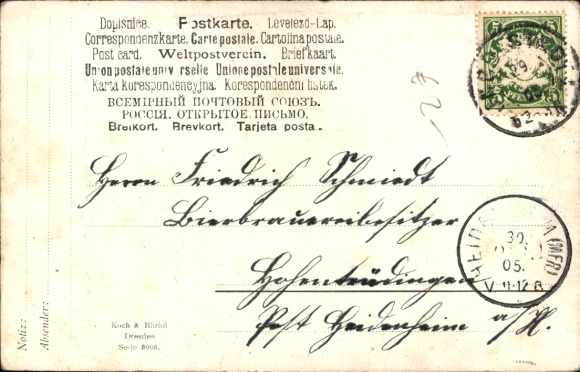 Dopisnice. Postkarte. Levelező-Lap.
Correspondenzkarte. Carte postale. Cartolina postale.
Post card. Weltpostverein. Briefkaart.
Union postale universelle Unione postale universale.
Karta korespondencyjna. Korespondenční lístek.
ВСЕМІРНЫЙ ПОЧТОВЫЙ СОЮЗЪ.
РОССІЯ. ОТКРЫТОЕ ПИСЬМО.
Brefkort. Brevkort. Tarjeta posta.
Herrn Friedrich Schmiedt
Bierbrauereibesitzer
Hohentrüdingen
Post Heidenheim a/H.
(MFR)
30
05.
V. 11-12 B
Koch & Bitriol
Dresden
Serie 2008.
Notiz:
Absender: